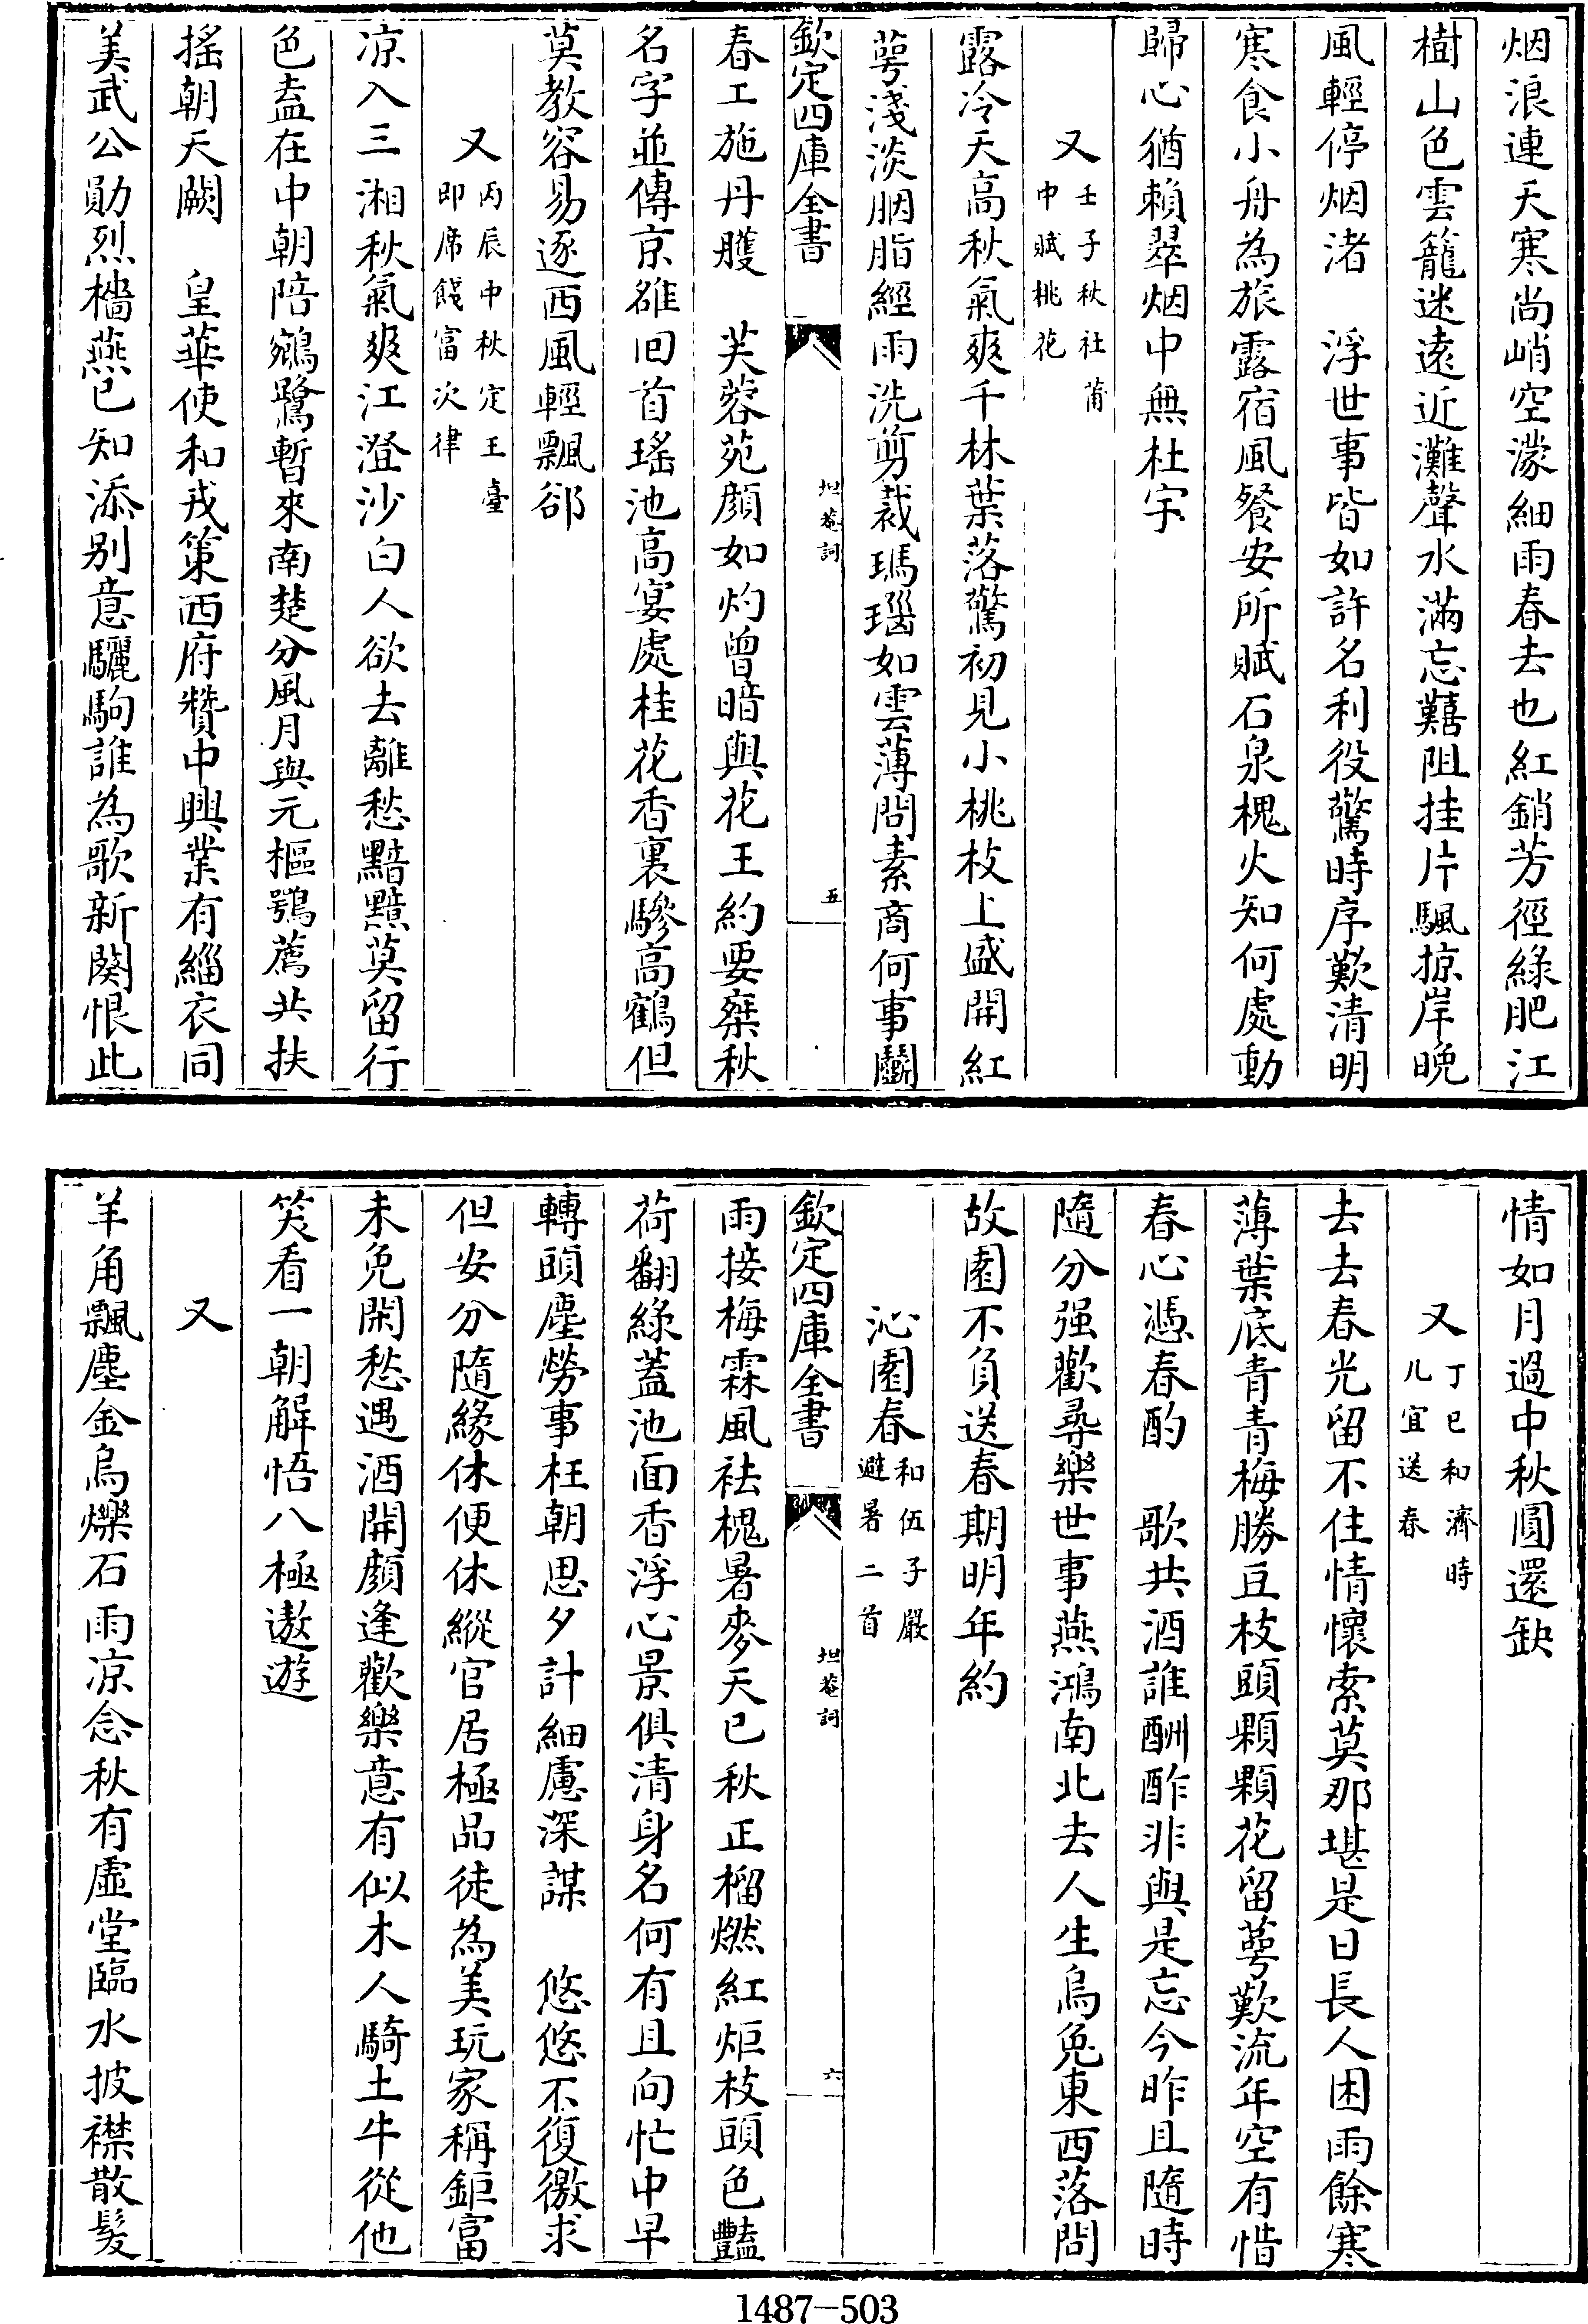 烟浪連天寒尚峭空濛細雨春去也紅銷芳徑綠肥江
樹山色雲籠迷遠近灘聲水滿忘囏阻挂片颿掠岸晚
風輕停烟渚　浮世事皆如許名利役驚時序歎清明
寒食小舟為旅露宿風餐安所賦石泉槐火知何處動
歸心猶賴翠烟中無杜宇
又
壬子秋社莆
中賦桃花
露冷天高秋氣爽千林葉落驚初見小桃枝上盛開紅
萼淺淡胭脂經雨洗剪裁瑪瑙如雲薄問素商何事鬭
欽定四庫全書
坦菴詞
五
春工施丹雘　芙蓉苑顔如灼曾暗與花王約要棄秋
名字並傳京雒回首瑤池高宴處桂花香裏驂高鶴但
莫教容易逐西風輕飄郤
又
丙辰中秋定王臺
即席餞富次律
凉入三湘秋氣爽江澄沙白人欲去離愁黯黯莫留行
色盍在中朝陪鵷鷺暫來南楚分風月與元樞鶚薦共扶
搖朝天闕　皇華使和戎策西府贊中興業有緇衣同
美武公勛烈檣燕已知添别意驪駒誰為歌新闋恨此
情如月過中秋圓還缺
又
丁巳和濟時
几宜送春
去去春光留不住情懷索莫那堪是日長人困雨餘寒
薄葉底青青梅勝豆枝頭顆顆花留萼歎流年空有惜
春心憑春酌　歌共酒誰酬酢非與是忘今昨且隨時
隨分强歡尋樂世事燕鴻南北去人生烏兔東西落問
故園不負送春期明年約
沁園春
和伍子嚴
避暑二首
欽定四庫全書
坦菴詞
六
雨接梅霖風祛槐暑麥天已秋正榴燃紅炬枝頭色豔
荷翻綠蓋池面香浮心景俱清身名何有且向忙中早
轉頭塵勞事枉朝思夕計細慮深謀　悠悠不復徼求
但安分隨緣休便休縱官居極品徒為美玩家稱鉅富
未免閑愁遇酒開顔逢歡樂意有似木人騎土牛從他
笑看一朝解悟八極遨遊
又
羊角飄塵金烏爍石雨凉念秋有虛堂臨水披襟散髮
1487-503